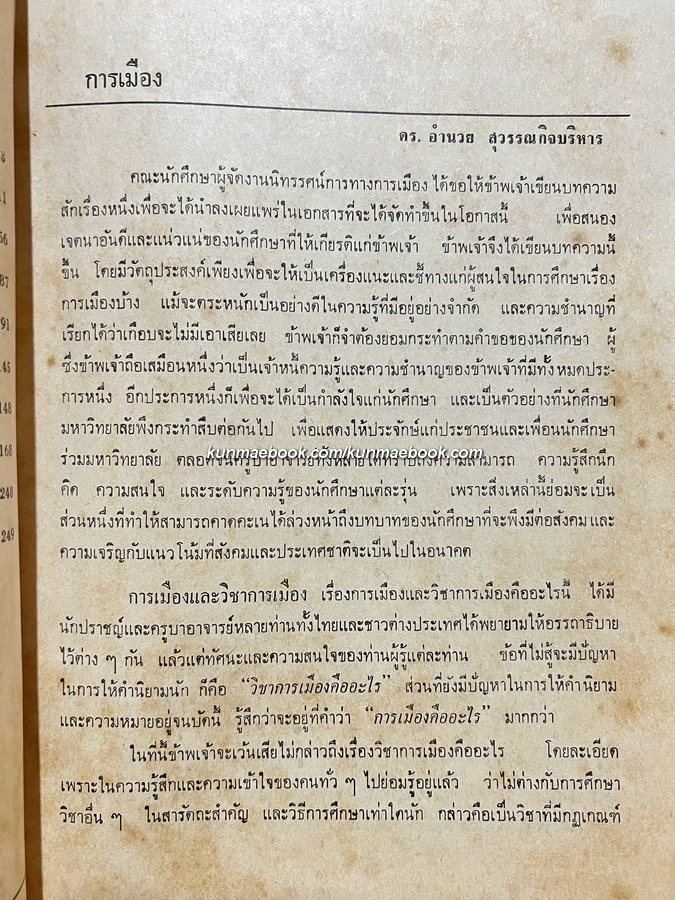 การเมือง
ดร. อำนวย สุวรรณกิจบริหาร
คณะนักศึกษาผู้จัดงานนิทรรศน์การทางการเมือง ได้ขอให้ข้าพเจ้าเขียนบทความ
สักเรื่องหนึ่งเพื่อจะได้นำลงเผยแพร่ในเอกสารที่จะได้จัดทำขึ้นในโอกาสนี้ เพื่อสนอง
เจตนาอันดีและแน่วแน่ของนักศึกษาที่ให้เกียรติแก่ข้าพเจ้า ข้าพเจ้าจึงได้เขียนบทความนี้
ขึ้น โดยมีวัตถุประสงค์เพียงเพื่อจะให้เป็นเครื่องแนะและชี้ทางแก่ผู้สนใจในการศึกษาเรื่อง
การเมืองบ้าง แม้จะตระหนักเป็นอย่างดีในความรู้ที่มีอยู่อย่างจำกัด และความชำนาญที่
เรียกได้ว่าเกือบจะไม่มีเอาเสียเลย ข้าพเจ้าก็จำต้องยอมกระทำตามคำขอของนักศึกษา ผู้
ซึ่งข้าพเจ้าถือเสมือนหนึ่งว่าเป็นเจ้าหนี้ความรู้และความชำนาญของข้าพเจ้าที่มีทั้งหมดประ-
การหนึ่ง อีกประการหนึ่งก็เพื่อจะได้เป็นกำลังใจแก่นักศึกษา และเป็นตัวอย่างที่นักศึกษา
มหาวิทยาลัยพึงกระทำสืบต่อกันไป เพื่อแสดงให้ประจักษ์แก่ประชาชนและเพื่อนนักศึกษา
kunmaebook.com/kunmaebook.com
ร่วมมหาวิทยาลัย ตลอดจนครูบาอาจารย์ทั้งหลายได้ทราบถึงความสามารถ ความรู้สึกนึก
คิด ความสนใจ และระดับความรู้ของนักศึกษาแต่ละรุ่น เพราะสิ่งเหล่านี้ย่อมจะเป็น
ส่วนหนึ่งที่ทำให้สามารถคาดคะเนได้ล่วงหน้าถึงบทบาทของนักศึกษาที่จะพึงมีต่อสังคม และ
ความเจริญกับแนวโน้มที่สังคมและประเทศชาติจะเป็นไปในอนาคต
การเมืองและวิชาการเมือง เรื่องการเมืองและวิชาการเมืองคืออะไรนี้ ได้มี
นักปราชญ์และครูบาอาจารย์หลายท่านทั้งไทยและชาวต่างประเทศได้พยายามให้อรรถาธิบาย
ไว้ต่าง ๆ กัน แล้วแต่ทัศนะและความสนใจของท่านผู้รู้แต่ละท่าน ข้อที่ไม่สู้จะมีปัญหา
ในการให้คำนิยามนัก ก็คือ “วิชาการเมืองคืออะไร” ส่วนที่ยังมีปัญหาในการให้คำนิยาม
และความหมายอยู่จนบัดนี้ รู้สึกว่าจะอยู่ที่คำว่า “การเมืองคืออะไร” มากกว่า
ในที่นี้ข้าพเจ้าจะเว้นเสียไม่กล่าวถึงเรื่องวิชาการเมืองคืออะไร โดยละเอียด
เพราะในความรู้สึกและความเข้าใจของคนทั่ว ๆ ไปย่อมรู้อยู่แล้ว ว่าไม่ต่างกับการศึกษา
วิชาอื่น ๆ ในสารัตถะสำคัญ และวิธีการศึกษาเท่าใดนัก กล่าวคือเป็นวิชาที่มีกฎเกณฑ์
91
148
168
248
249